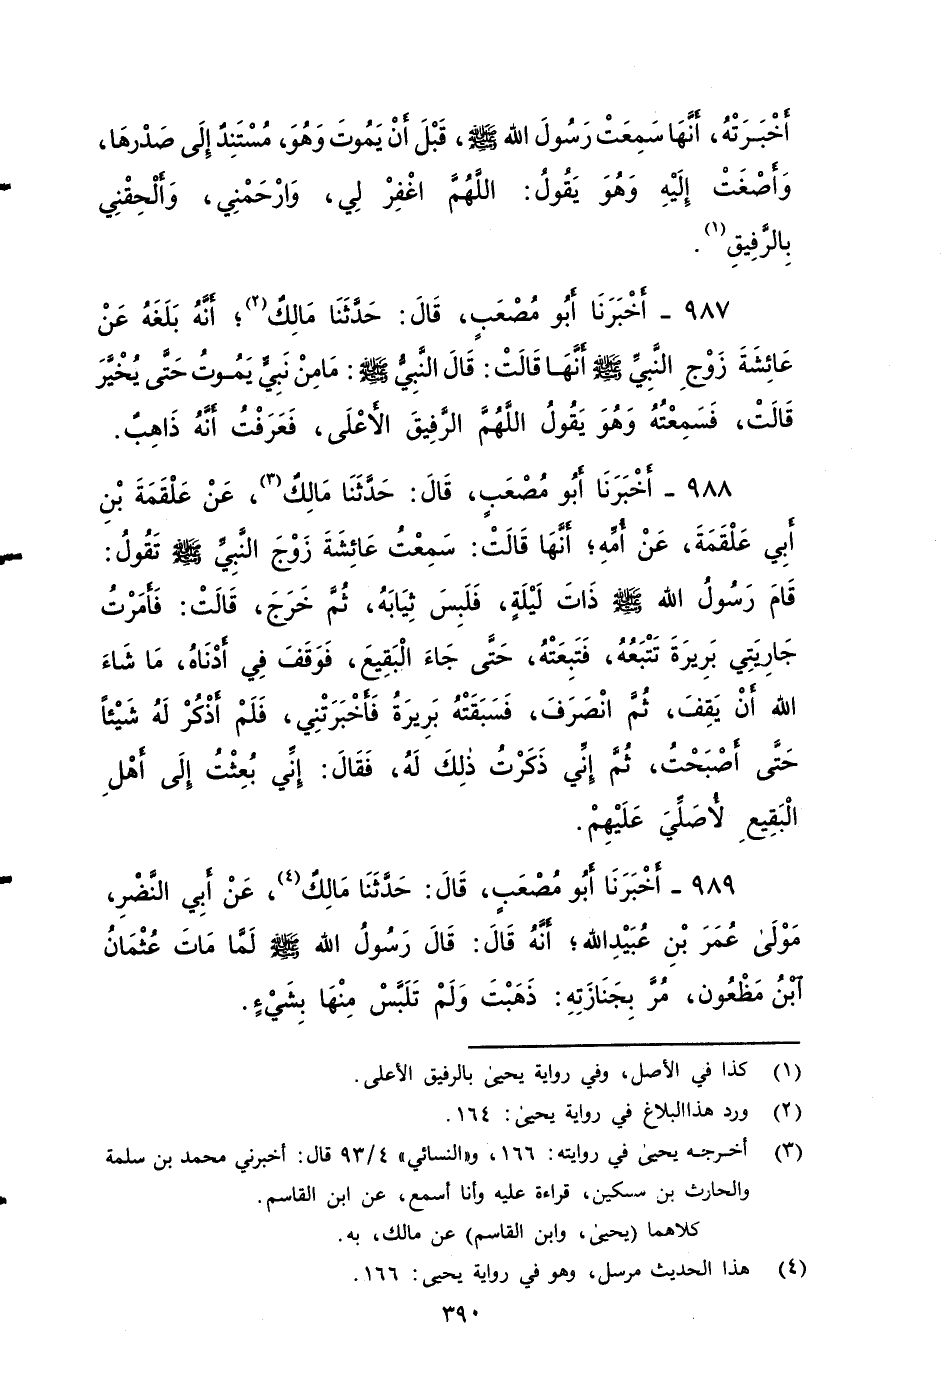 أَخْبَرَتْهُ، أَنَّهَا سَمِعَتْ رَسُولَ الله ﷺ، قَبْلَ أَنْ يَمُوتَ وَهُوَ، مُسْتَنِدٌ إِلَى صَدْرِهَا،
وَأَصْغَتْ إِلَيْهِ وَهُوَ يَقُولُ: اللَّهُمَّ اغْفِرْ لِي، وَارْحَمْنِي، وَأَلْحِقْنِي
بِالرَّفِيقِ(١).
٩٨٧ - أَخْبَرَنَا أَبُو مُصْعَبٍ، قَالَ: حَدَّثَنَا مَالِكٌ(٢)؛ أَنَّهُ بَلَغَهُ عَنْ
عَائِشَةَ زَوْجِ النَّبِيِّ ﷺ أَنَّهَا قَالَتْ: قَالَ النَّبِيُّ ﷺ: مَامِنْ نَبِيٍّ يَمُوتُ حَتَّى يُخْيَّرَ
قَالَتْ، فَسَمِعْتُهُ وَهُوَ يَقُولُ اللَّهُمَّ الرَّفِيقَ الأَعْلَى، فَعَرَفْتُ أَنَّهُ ذَاهِبٌ.
٩٨٨ - أَخْبَرَنَا أَبُو مُصْعَبٍ، قَالَ: حَدَّثَنَا مَالِكٌ(٣)، عَنْ عَلْقَمَةَ بْنِ
أَبِي عَلْقَمَةَ، عَنْ أُمِّهِ؛ أَنَّهَا قَالَتْ: سَمِعْتُ عَائِشَةَ زَوْجَ النَّبِيِّ ﷺ تَقُولُ:
قَامَ رَسُولُ الله ﷺ ذَاتَ لَيْلَةٍ، فَلَبِسَ ثِيَابَهُ، ثُمَّ خَرَجَ، قَالَتْ: فَأَمَرْتُ
جَارِيَتِي بَرِيرَةَ تَتْبَعُهُ، فَتَبِعَتْهُ، حَتَّى جَاءَ الْبَقِيعَ، فَوَقَفَ فِي أَدْنَاهُ، مَا شَاءَ
الله أَنْ يَقِفَ، ثُمَّ انْصَرَفَ، فَسَبَقَتْهُ بَرِيرَةُ فَأَخْبَرَتْنِي، فَلَمْ أَذْكُرْ لَهُ شَيْئاً
حَتَّى أَصْبَحْتُ، ثُمَّ إِنِّي ذَكَرْتُ ذٰلِكَ لَهُ، فَقَالَ: إِنِّي بُعِثْتُ إِلَى أَهْلِ
الْبَقِيعِ لأُصَلِّيَ عَلَيْهِمْ.
٩٨٩ - أَخْبَرَنَا أَبُو مُصْعَبٍ، قَالَ: حَدَّثَنَا مَالِكٌ(٤)، عَنْ أَبِي النَّضْرِ،
مَوْلَىٰ عُمَرَ بْنِ عُبَيْدِالله؛ أَنَّهُ قَالَ: قَالَ رَسُولُ الله ﷺ لَمَّا مَاتَ عُثْمَانُ
ٱبْنُ مَظْعُون، مُرَّ بِجَنَازَتِهِ: ذَهَبْتَ وَلَمْ تَلَبَّسْ مِنْهَا بِشَيْءٍ.
(١) كذا في الأصل، وفي رواية يحيىٰ بالرفيق الأعلى.
(٢) ورد هذاالبلاغ في رواية يحيىٰ: ١٦٤.
(٣) أخرجه يحيىٰ في روايته: ١٦٦، و«النسائي» ٩٣/٤ قال: أخبرني محمد بن سلمة
والحارث بن مسكين، قراءة عليه وأنا أسمع، عن ابن القاسم.
كلاهما (يحيىٰ، وابن القاسم) عن مالك، به.
(٤) هذا الحديث مرسل، وهو في رواية يحيى: ١٦٦.
٣٩٠